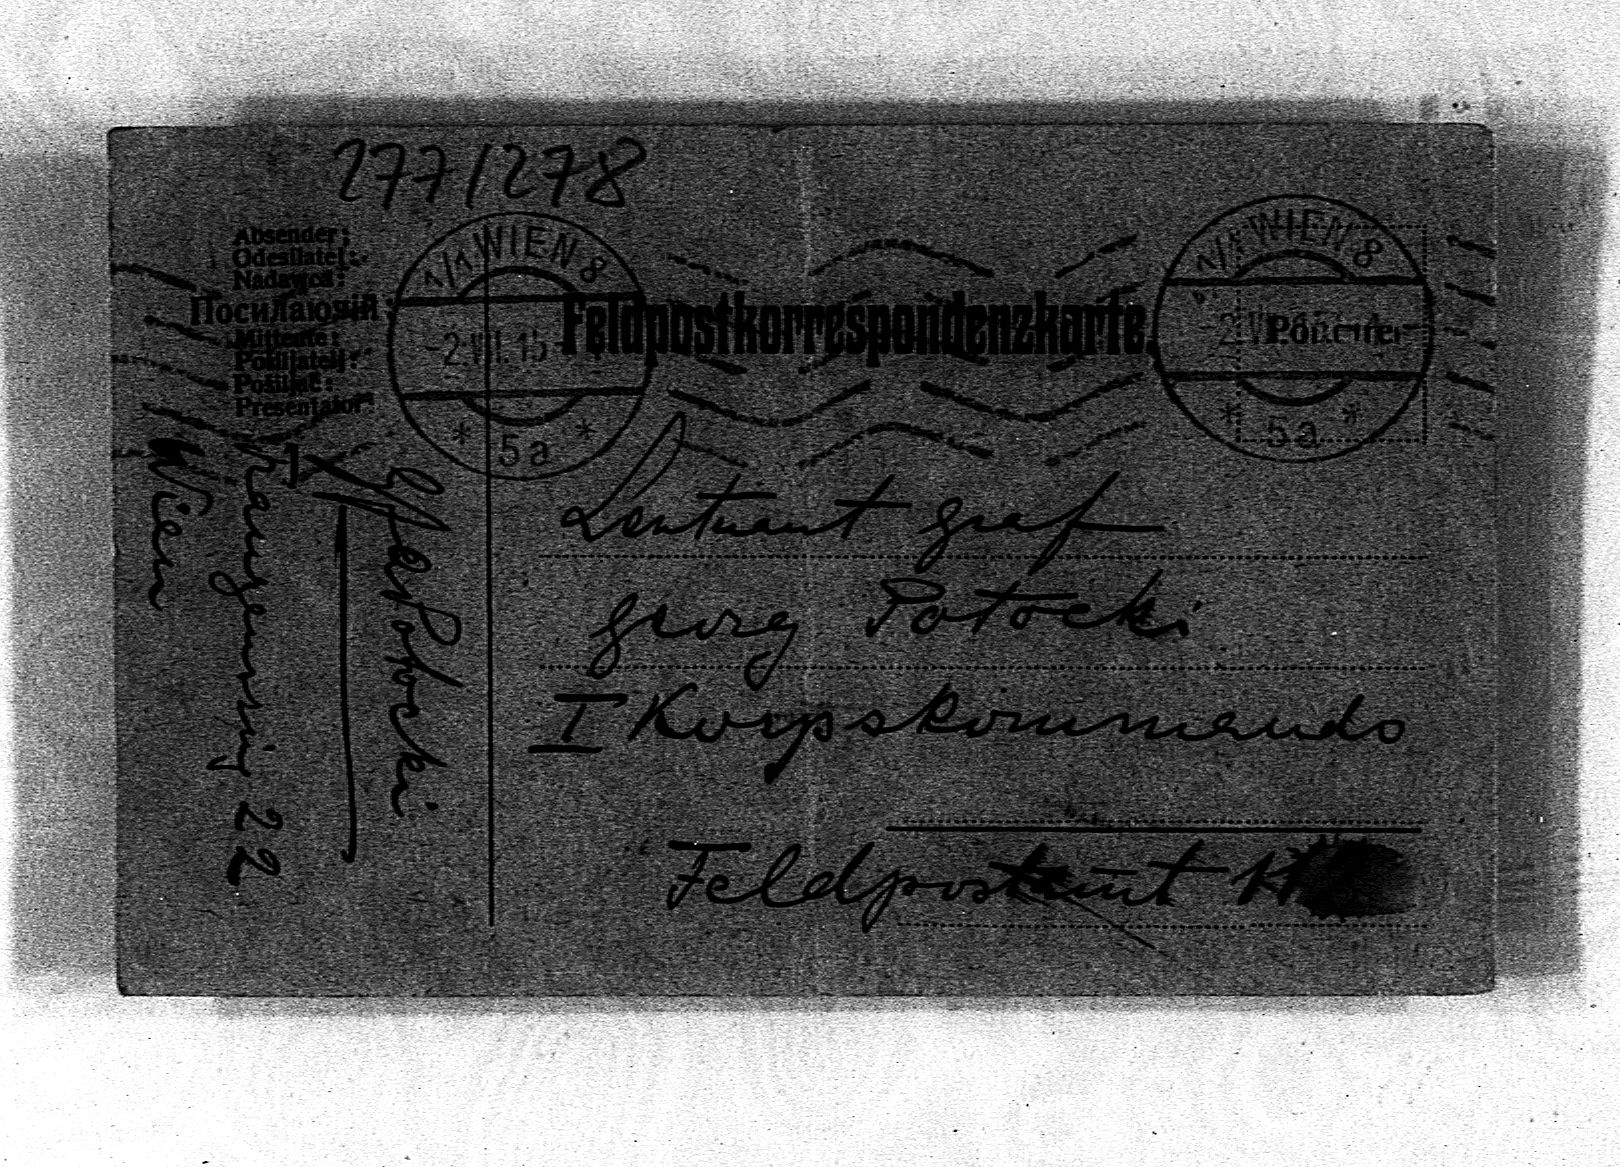 277/278
Absender:
Odesilatel:
Nadawca:
Посилаючій:
Mittente:
Pošiljatelj:
Pošiljač:
Presentator:
1/1 WIEN 8
-2.VII.15-
* 5a *
Feldpostkorrespondenzkarte.
1/1 WIEN 8
-2.VII
* 5a *
Leutnant Graf
Georg Potocki
I Korpskommando
Feldpostamt
Potocki
22
Wien